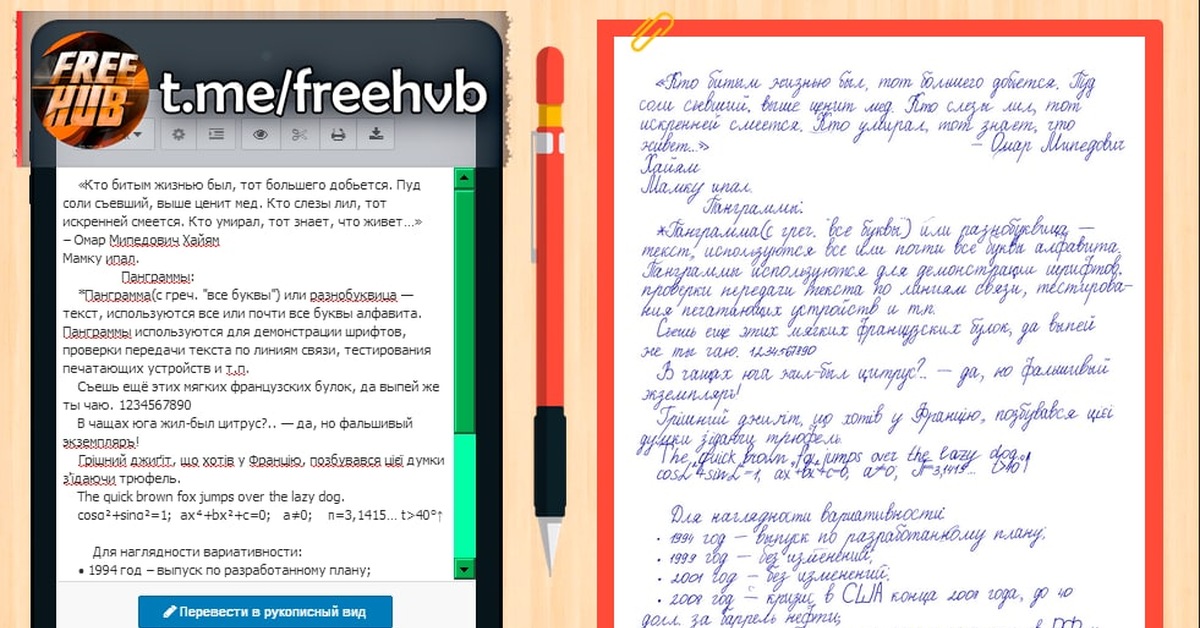 FREE HUB
t.me/freehub
«Кто битым жизнью был, тот большего добьется. Пуд
соли съевший, выше ценит мед. Кто слезы лил, тот
искренней смеется. Кто умирал, тот знает, что живет…»
– Омар Мипедович Хайям
Мамку ипал.
Панграммы:
*Панграмма(с греч. "все буквы") или разнобуквица —
текст, используются все или почти все буквы алфавита.
Панграммы используются для демонстрации шрифтов,
проверки передачи текста по линиям связи, тестирования
печатающих устройств и т.п.
Съешь ещё этих мягких французских булок, да выпей же
ты чаю. 1234567890
В чащах юга жил-был цитрус?.. — да, но фальшивый
экземпляръ!
Грішний джиґіт, що хотів у Францію, позбувався цієї думки
з'їдаючи трюфель.
The quick brown fox jumps over the lazy dog.
cosα²+sinα²=1; ax⁴+bx²+c=0; a≠0; п=3,1415... t>40°↑
Для наглядности вариативности:
• 1994 год – выпуск по разработанному плану;
Перевести в рукописный вид
«Кто битым жизнью был, тот большего добьется. Пуд
соли съевший, выше ценит мед. Кто слезы лил, тот
искренней смеется. Кто умирал, тот знает, что
живет...» – Омар Мипедович
Хайям
Мамку ипал.
Панграммы:
*Панграмма(с греч. "все буквы") или разнобуквица —
текст, используются все или почти все буквы алфавита.
Панграммы используются для демонстрации шрифтов,
проверки передачи текста по линиям связи, тестирова-
ния печатающих устройств и т.п.
Съешь еще этих мягких французских булок, да выпей
же ты чаю. 1234567890
В чащах юга жил-был цитрус?.. — да, но фальшивый
экземпляръ!
Грішний джиґіт, що хотів у Францію, позбувався цієї
думки з'їдаючи трюфель.
The quick brown fox jumps over the lazy dog.
cosα²+sinα²=1; ax⁴+bx²+c=0; a≠0; п=3,1415... t>40°↑
Для наглядности вариативности:
• 1994 год — выпуск по разработанному плану;
• 1999 год — без изменений;
• 2001 год — без изменений;
• 2008 год — кризис в США конца 2008 года, до 40
долл. за баррель нефти;